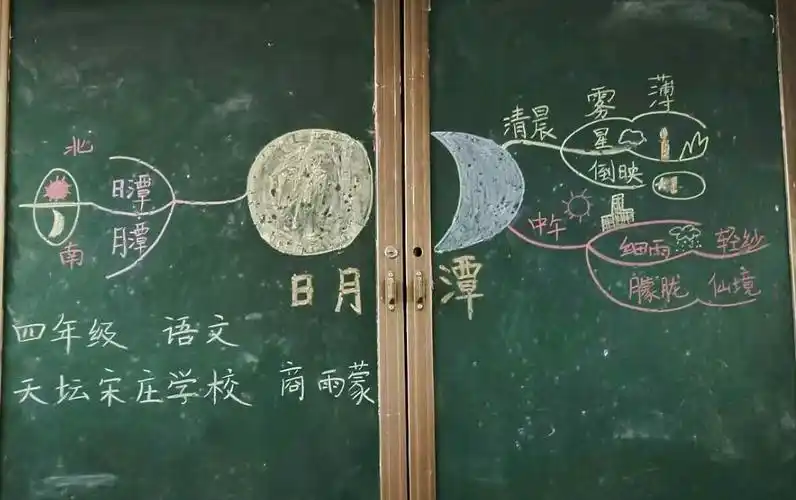 北
日潭
月潭
南
日月潭
清晨
雾
薄
星
倒映
中午
细雨
轻纱
朦胧
仙境
四年级 语文
天坛宋庄学校 商雨蒙